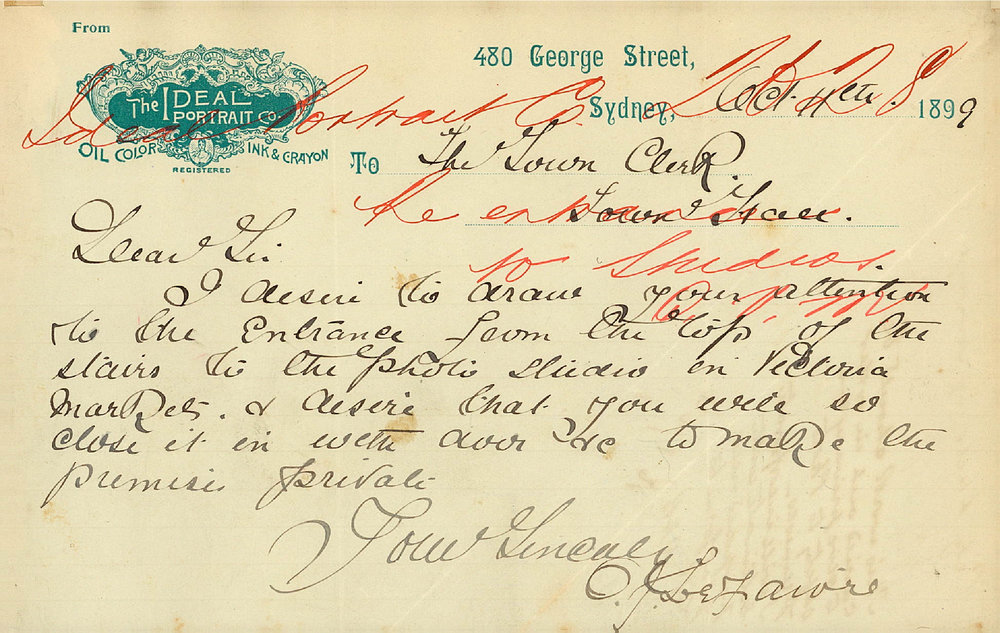 From
THE IDEAL
PORTRAIT CO.
OIL COLOR INK & CRAYON
REGISTERED
480 George Street,
Sydney, Oct 4th 1899
Ideal Portrait Co.
To The Town Clerk.
Town Hall.
re entrance
to Studios.
Dear Sir
I desire to draw your attention
to the Entrance from the top of the
stairs to the photo studio in Victoria
Markets. & desire that you will so
close it in with door &c to make the
premises private
Your Sincerely